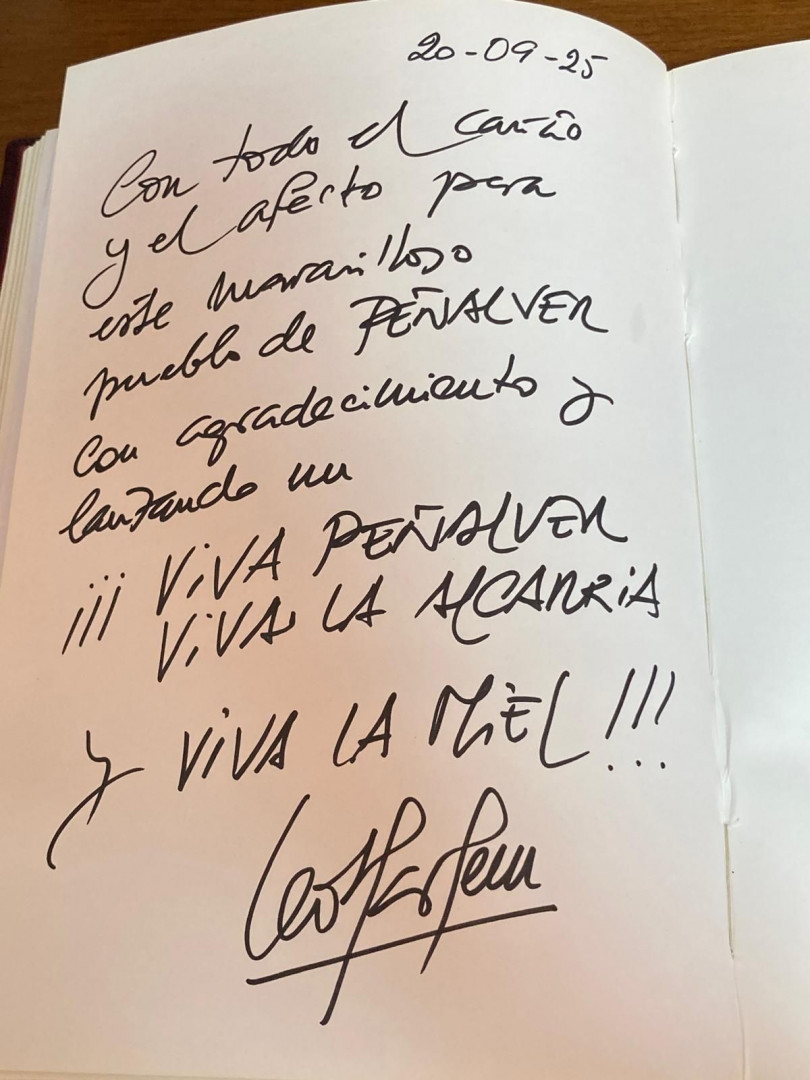 20-09-25
Con todo el cariño
y el afecto para
este maravilloso
pueblo de PEÑALVER
con agradecimiento y
lanzando un
¡¡¡ ViVA PEÑALVER
ViVA LA ALCARRiA
y ViVA LA MiEL!!!
Leo Harlem